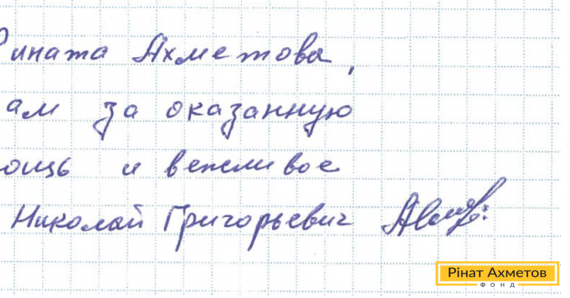 Рината Ахметова,
ам за оказанную
ощь и вежливое
Николай Григорьевич
Рінат Ахметов
ФОНД